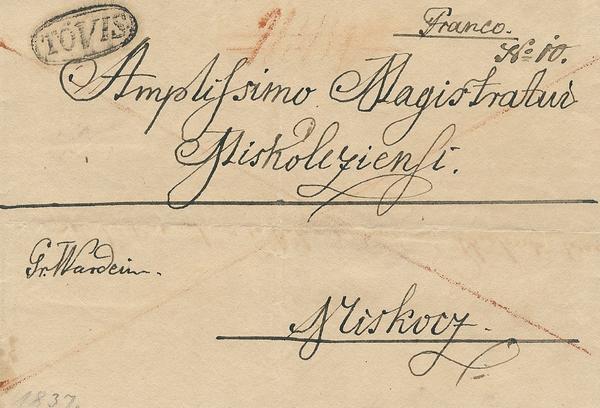 TOVIS
Franco.
No 10.
Ampliſsimo Magistratui
Miskolcziensi.
Gr. Wardein.
Miskocz.
1837.